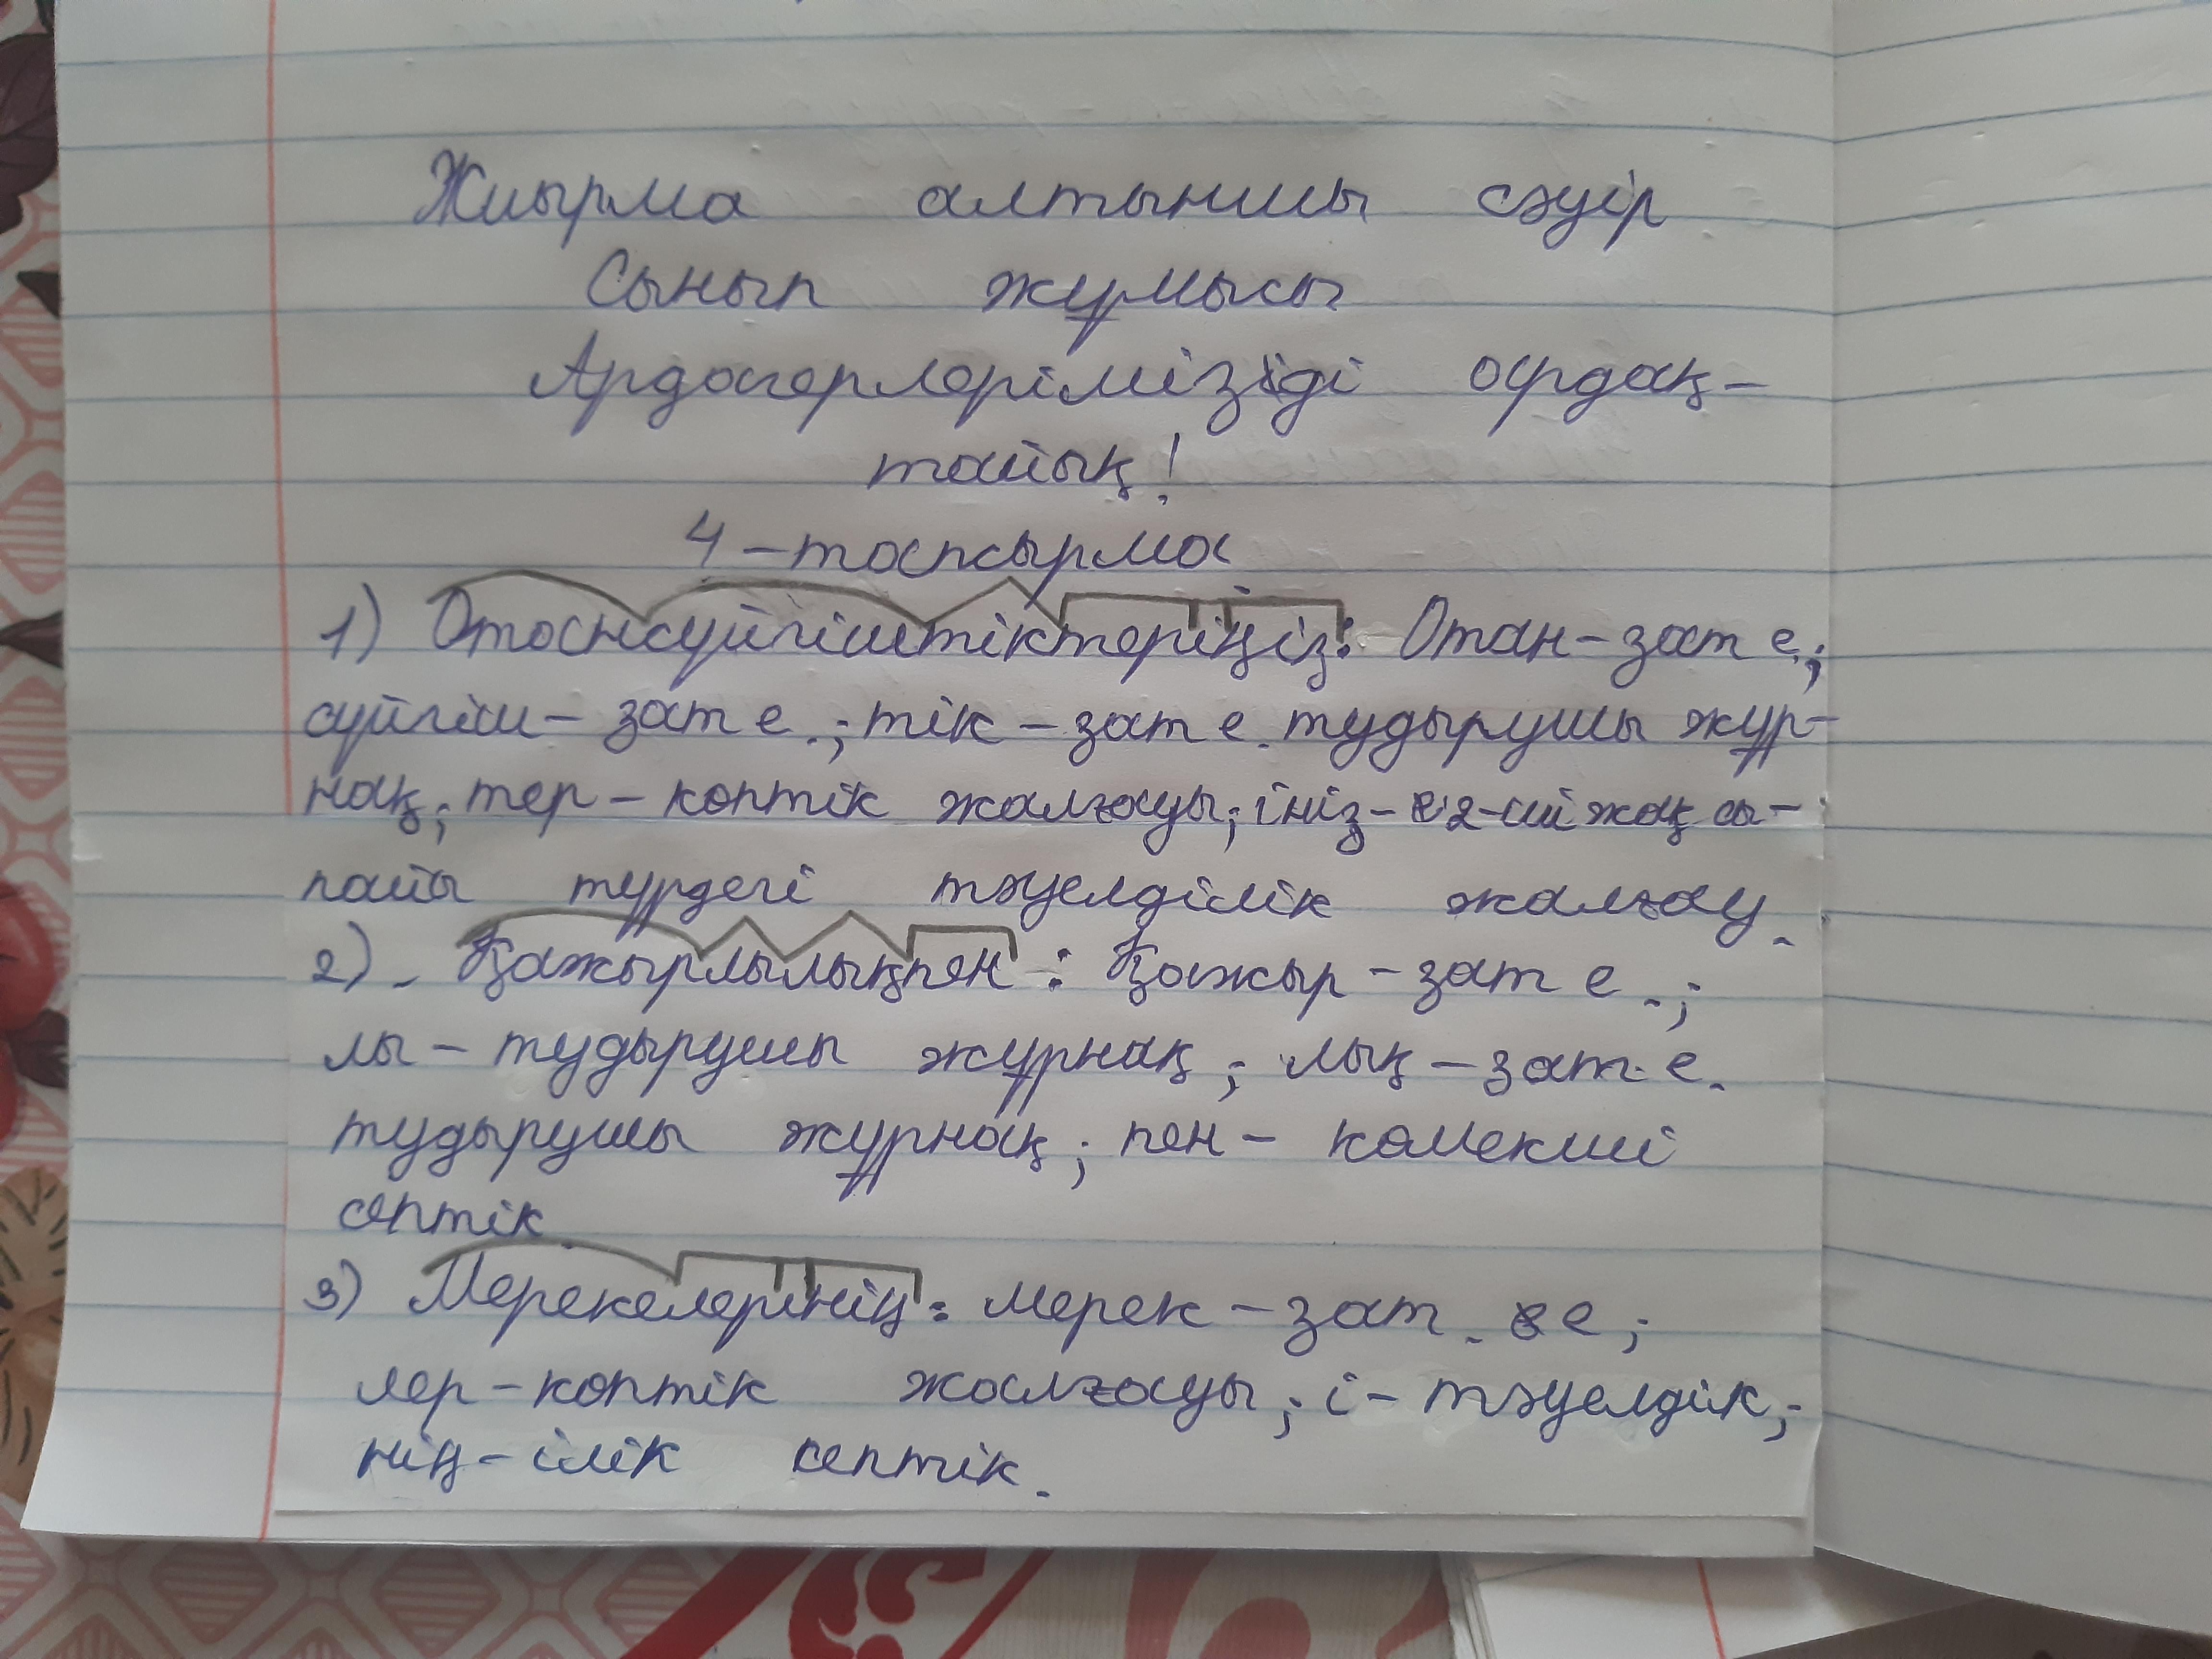 Жиырма алтыншы сәуір
Сынып жұмысы
Ардагерлерімізді ардақ-
тайық!
4-тапсырма
1) Отансүйгіштіктеріңіз: Отан-зат е.;
сүйгіш- зат е.; тік - зат е. тудырушы жұр-
нақ; тер - көптік жалғауы; іңіз- 2-ші жақ сы-
пайы түрдегі тәуелділік жалғау.
2). Қажырлылықпен: Қажыр - зат е.;
лы - тудырушы жұрнақ; лық - зат е.
тудырушы жұрнақ; пен - көмекші
септік.
3) Мерекелерінің: мерек - зат. е;
лер-көптік жалғауы; і- тәуелдік;
нің-ілік септік.